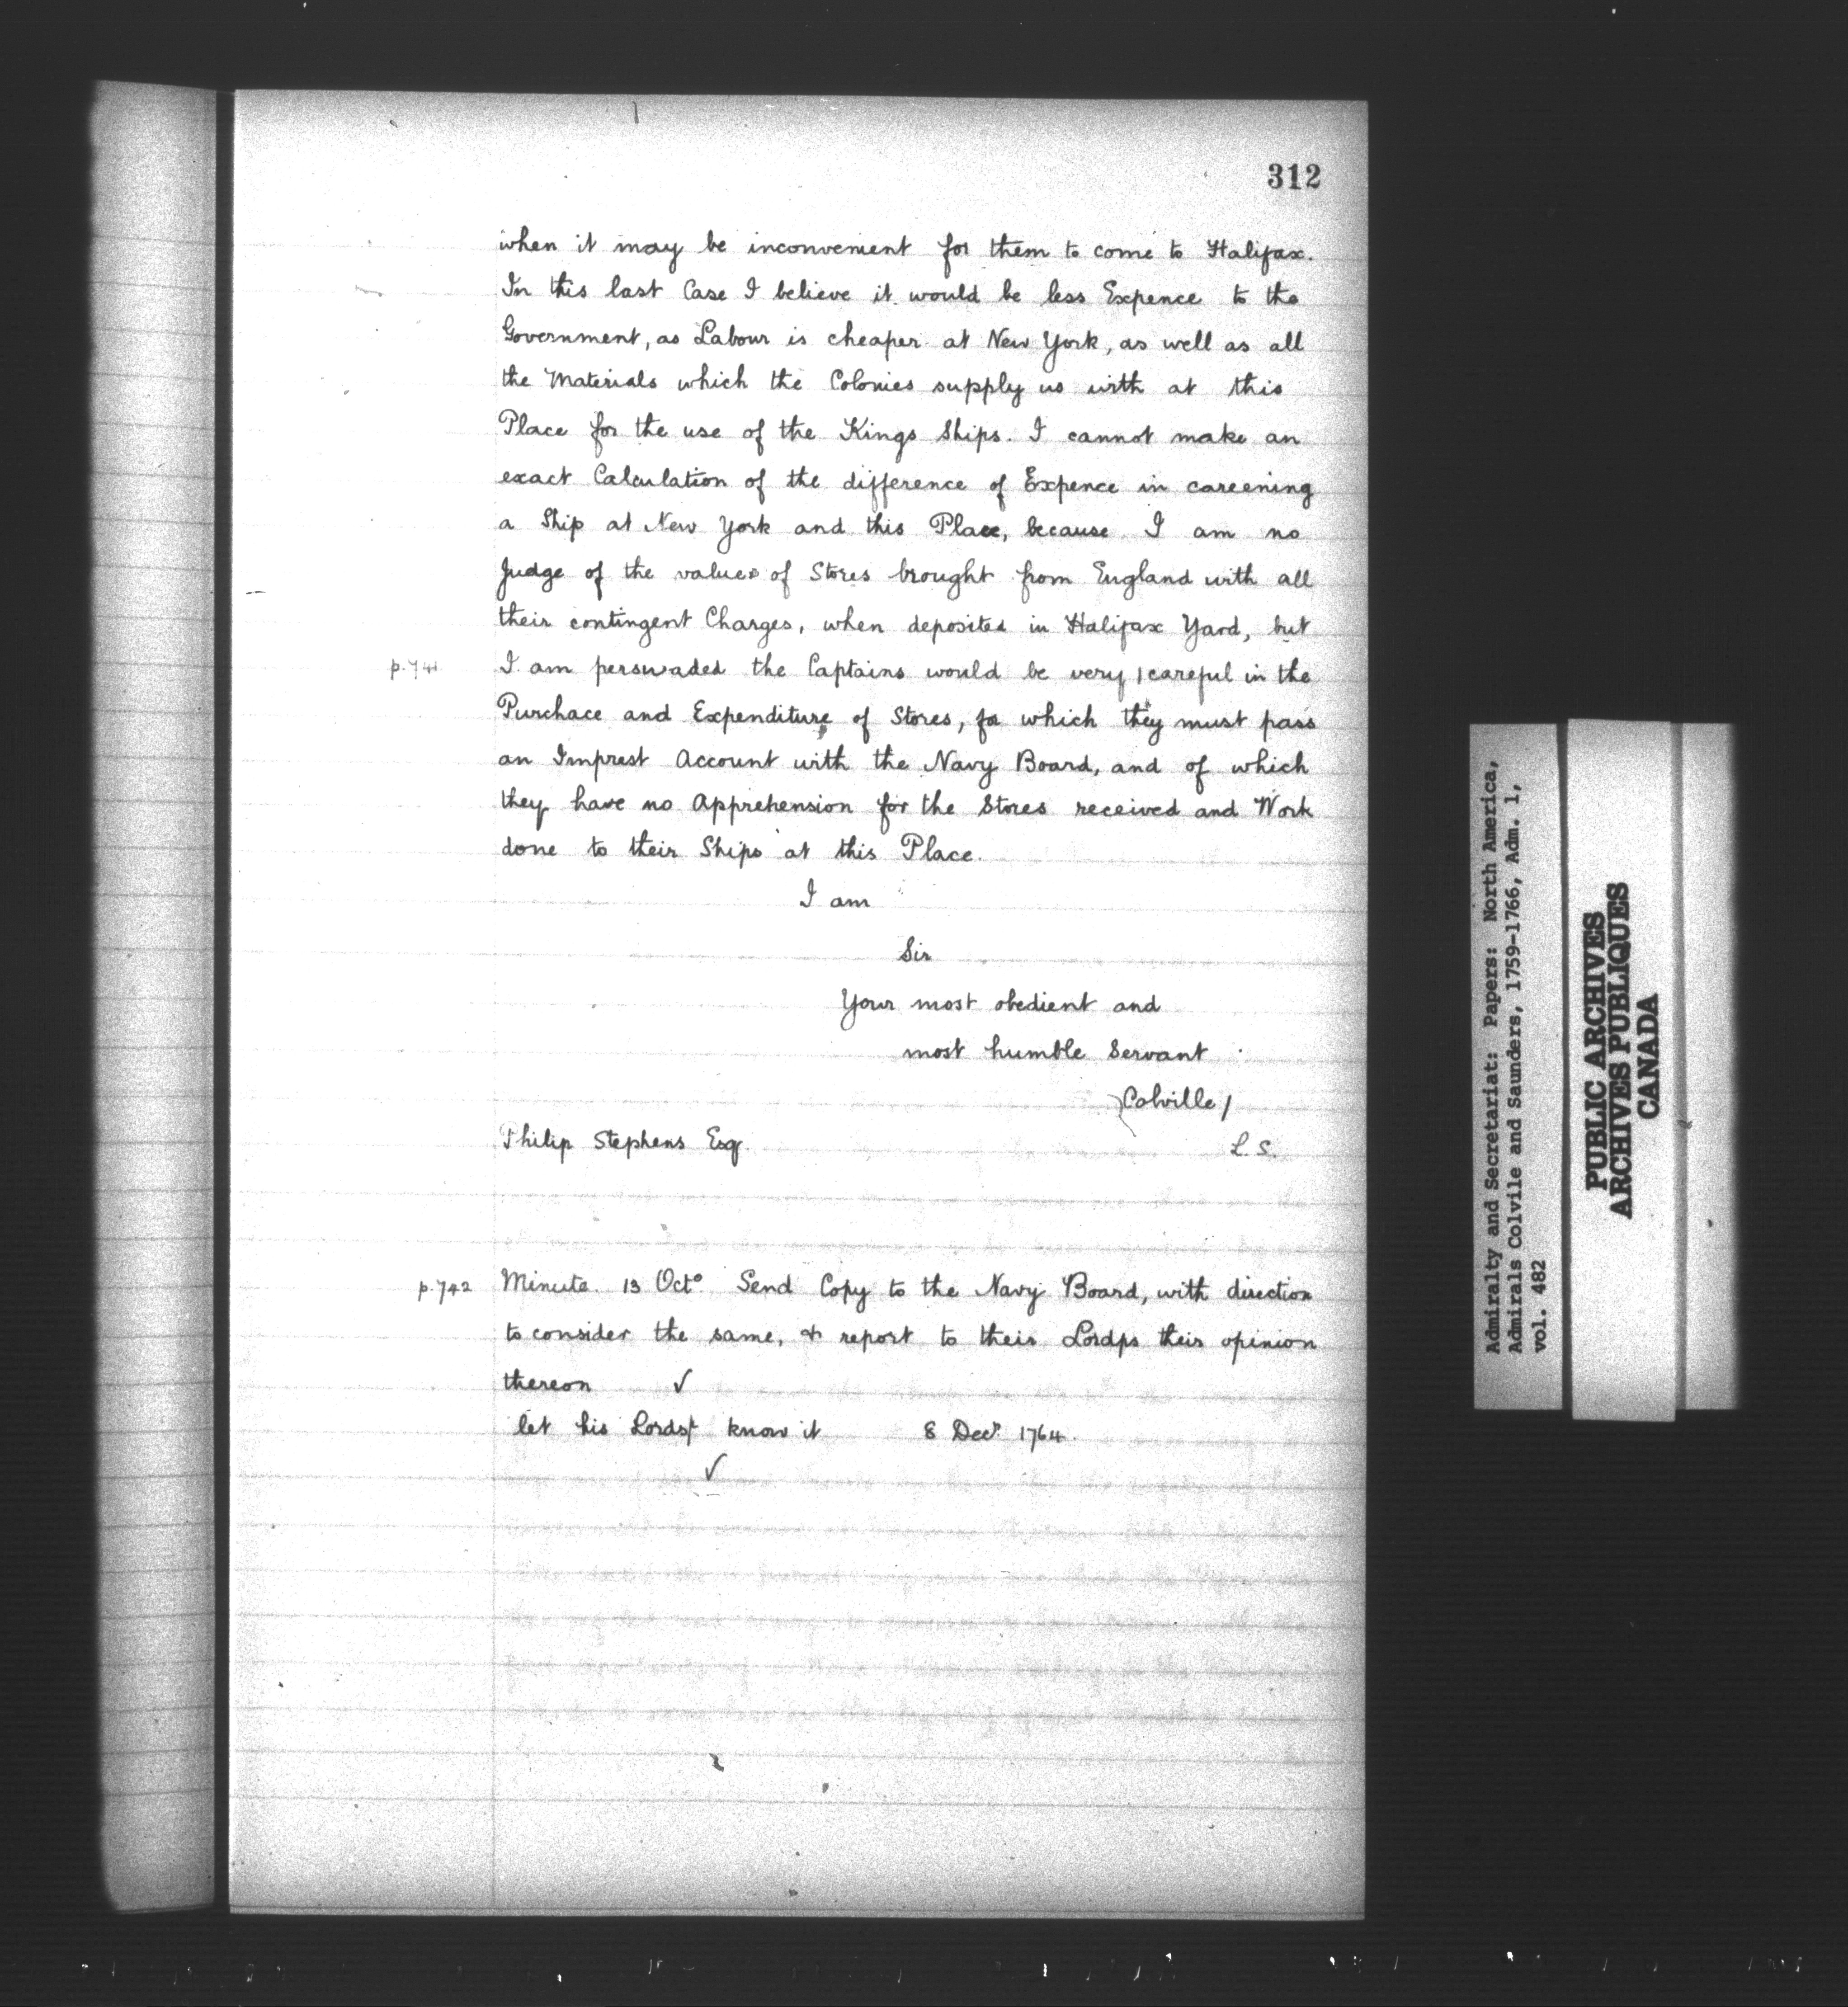 312
when it may be inconvenient for them to come to Halifax.
In this last Case I believe it would be less Expence to the
Government, as Labour is cheaper at New York, as well as all
the Materials which the Colonies supply us with at this
Place for the use of the Kings Ships. I cannot make an
exact Calculation of the difference of Expence in careening
a Ship at New York and this Place, because I am no
Judge of the values of Stores brought from England with all
their contingent Charges, when deposited in Halifax Yard, but
p.741 I am perswaded the Captains would be very / careful in the
Purchace and Expenditure of Stores, for which they must pass
an Imprest Account with the Navy Board, and of which
they have no Apprehension for the Stores received and Work
done to their Ships at this Place.
I am
Sir
Your most obedient and
most humble Servant
Colville /
Philip Stephens Esqr. L. S.
p.742 Minute. 13 Octo Send Copy to the Navy Board, with direction
to consider the same, & report to their Lordps their opinion
thereon ✓
let his Lordsp know it 8 Decr. 1764.
✓
Admiralty and Secretariat: Papers: North America,
Admirals Colvile and Saunders, 1759-1766, Adm. 1,
vol. 482
PUBLIC ARCHIVES
ARCHIVES PUBLIQUES
CANADA